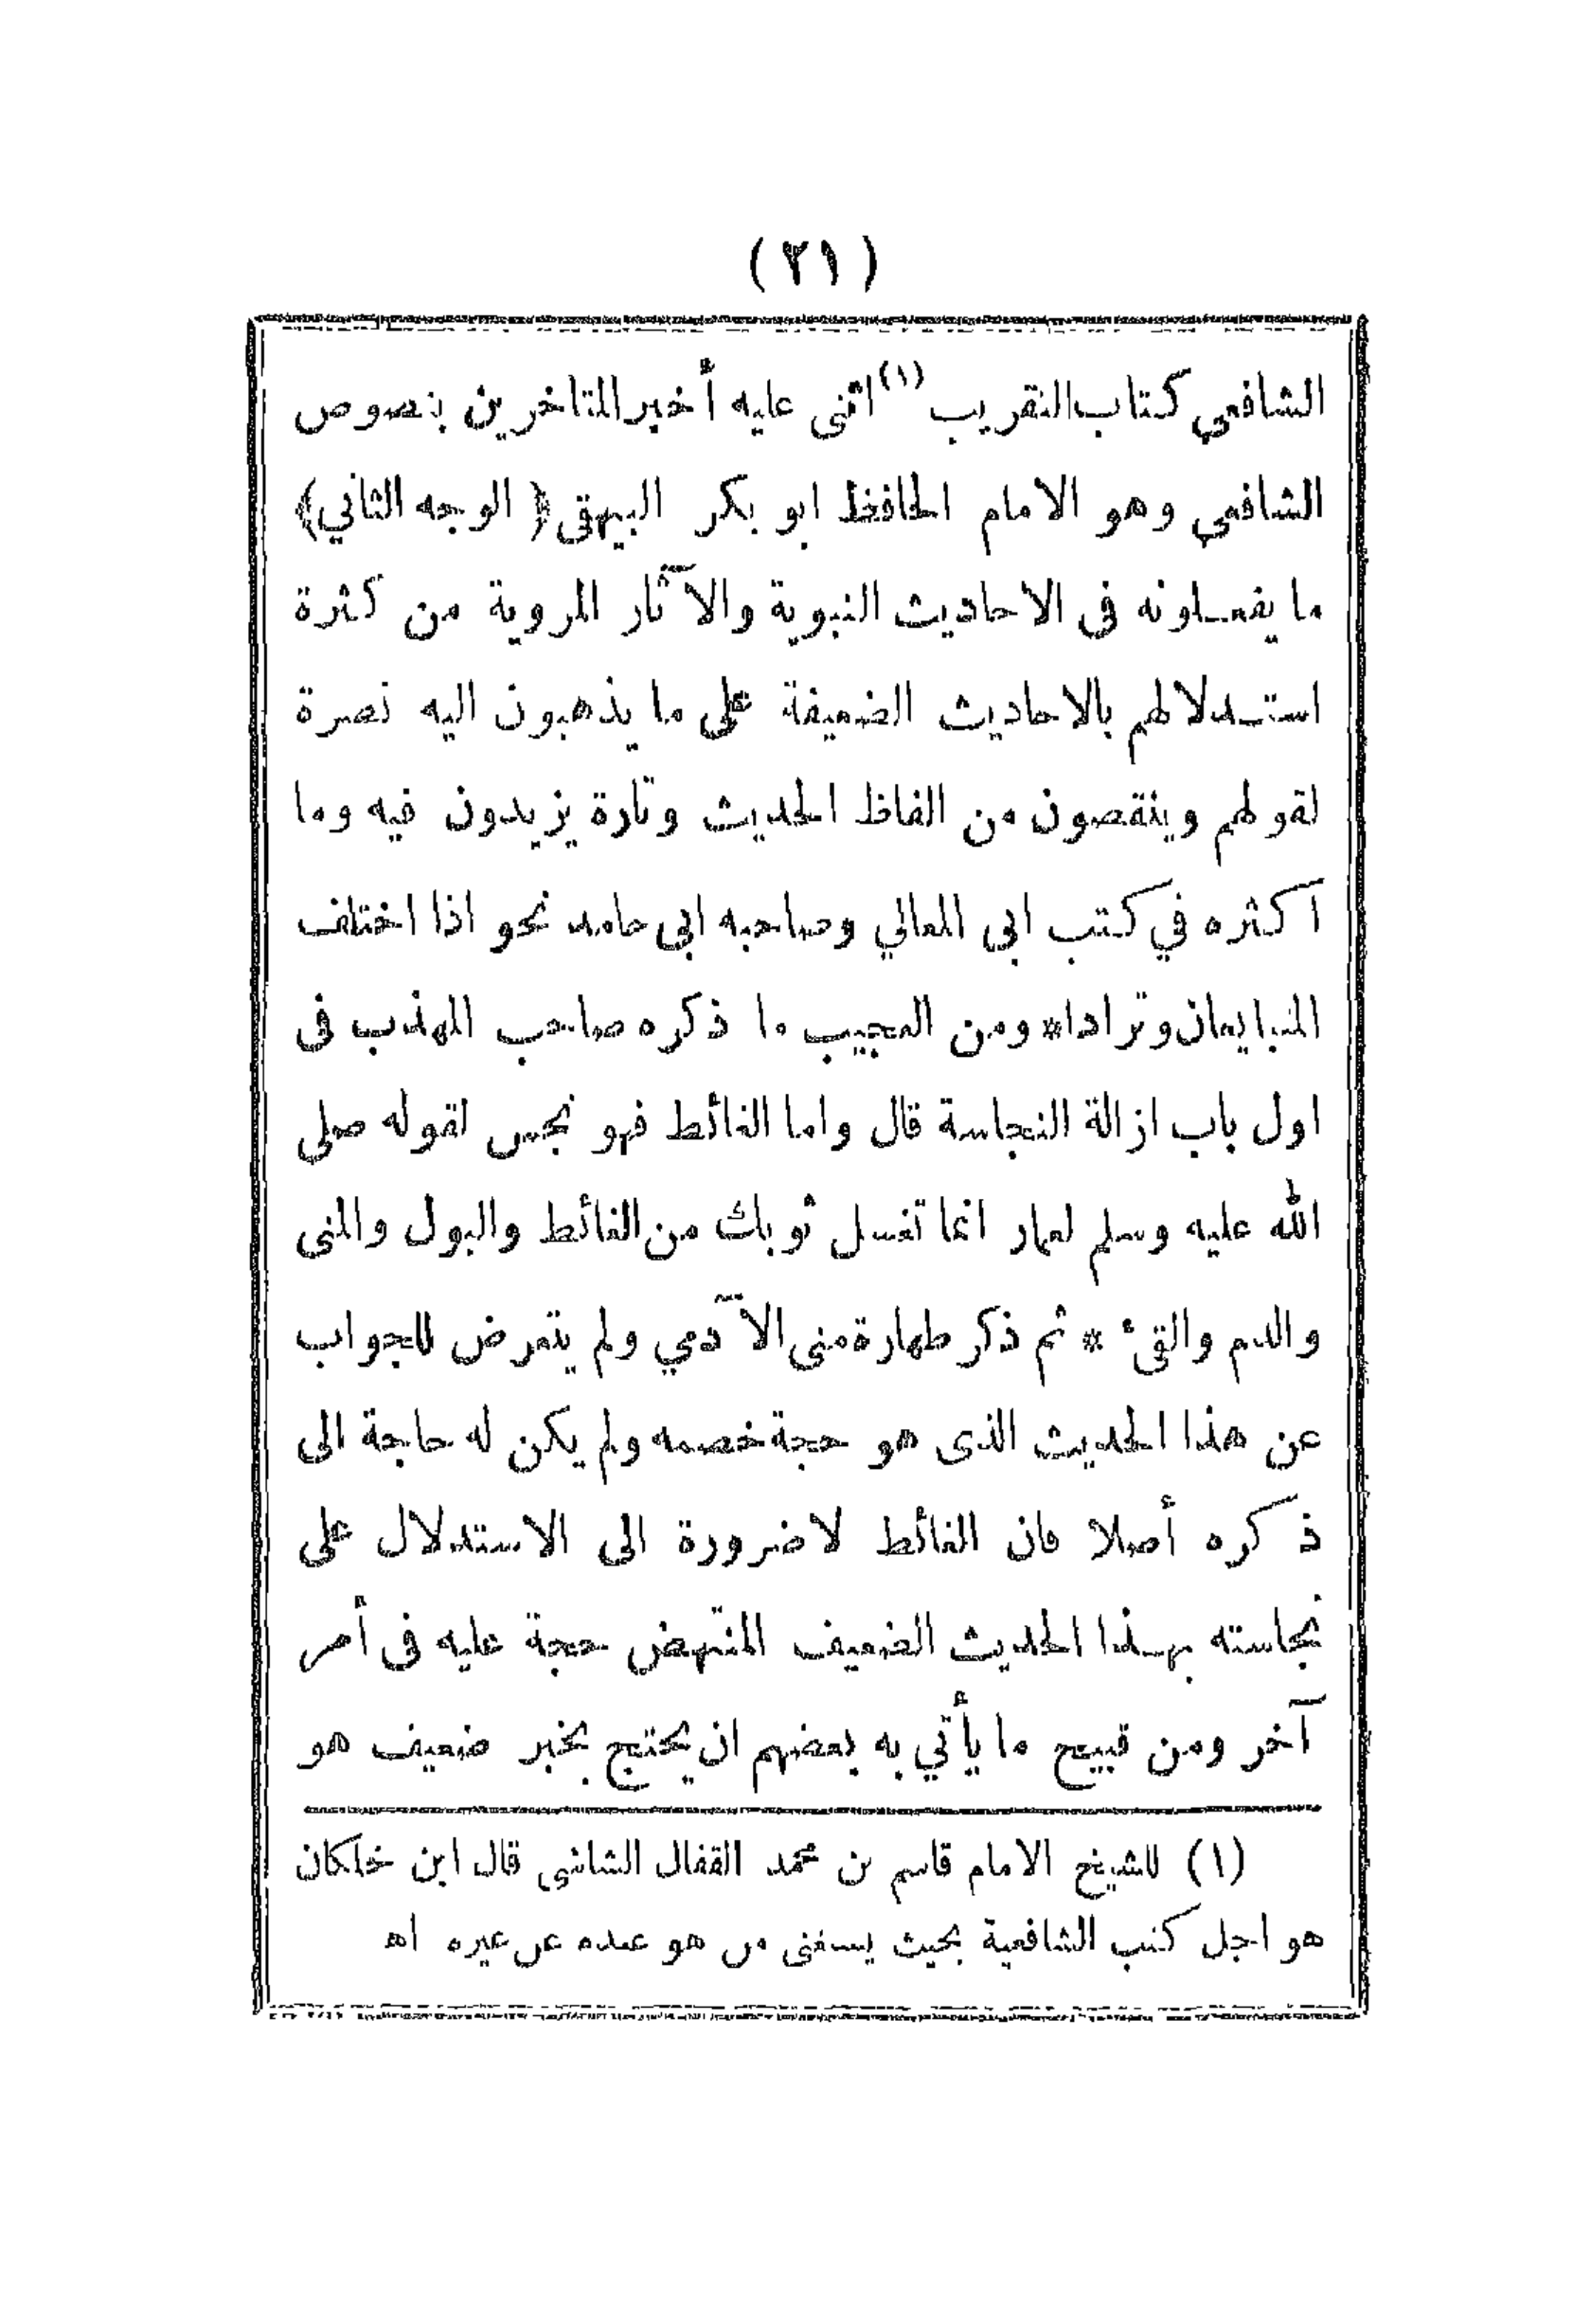 (٢١)
الشافعي كتاب التقريب (١) اثنى عليه أخبر المتاخرين بنصوص
الشافعي وهو الامام الحافظ ابو بكر البيهقى ﴿ الوجه الثاني ﴾
ما يفعلونه فى الاحاديث النبوية والآثار المروية من كثرة
استدلالهم بالاحاديث الضعيفة على ما يذهبون اليه نصرة
لقولهم وينقصون من الفاظ الحديث وتارة يزيدون فيه وما
أكثره في كتب ابى المعالي وصاحبه ابى حامد نحو اذا اختلف
المتبايعان وترادا * ومن العجيب ما ذكره صاحب المهذب فى
اول باب ازالة النجاسة قال واما الغائط فهو نجس لقوله صلى
الله عليه وسلم لعمار انما تغسل ثوبك من الغائط والبول والمنى
والدم والقئ * ثم ذكر طهارة منى الآدمي ولم يتعرض للجواب
عن هذا الحديث الذى هو حجة خصمه ولم يكن له حاجة الى
ذكره أصلا فان الغائط لا ضرورة الى الاستدلال على
نجاسته بهذا الحديث الضعيف المنتهض حجة عليه فى أمر
آخر ومن قبيح ما يأتي به بعضهم ان يحتج بخبر ضعيف هو
(١) للشيخ الامام قاسم بن محمد القفال الشاشى قال ابن خلكان
هو اجل كتب الشافعية بحيث يستغنى من هو عنده عن غيره اه